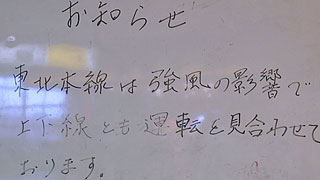 お知らせ
東北本線は強風の影響で
上下線とも運転を見合わせて
おります。